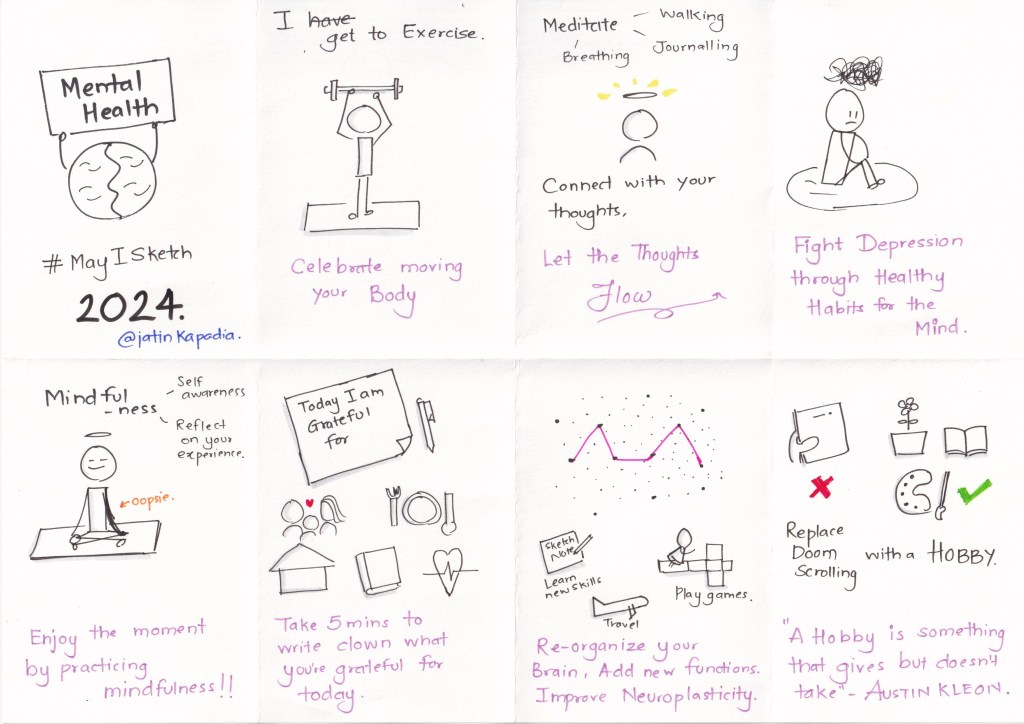 Mental
Health
# May I Sketch
2024.
@jatin kapadia.
I have
get to Exercise.
Celebrate moving
your Body
Meditate
Walking
Breathing
Journalling
Connect with your
thoughts,
Let the Thoughts
Flow
Fight Depression
through Healthy
Habits for the
Mind.
Mindful
-ness
Self
awareness
Reflect
on your
experience.
oopsie.
Enjoy the moment
by practicing
mindfulness!!
Today I am
Grateful
for
Take 5 mins to
write down what
you're grateful for
today.
Sketch
Note
Learn
new skills
Play games.
Travel
Re-organize your
Brain, Add new functions.
Improve Neuroplasticity.
Replace
Doom
Scrolling
with a HOBBY.
"A Hobby is something
that gives but doesn't
take" - AUSTIN KLEON.